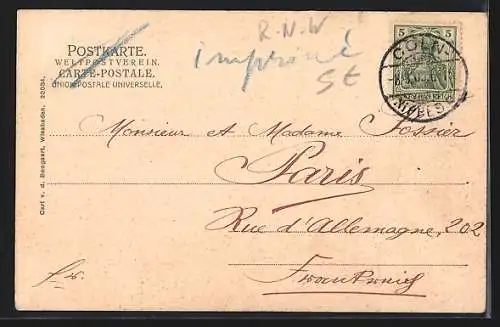 R.N.W
imprimé
St
POSTKARTE.
WELTPOSTVEREIN.
CARTE-POSTALE.
UNION POSTALE UNIVERSELLE.
5 5
CÖLN-
NIPPES
Monsieur et Madame Fossier
Paris
Rue d'Allemagne, 202
Frankreich
fr.
Carl v. d. Boogaart, Wiesbaden. 20034.